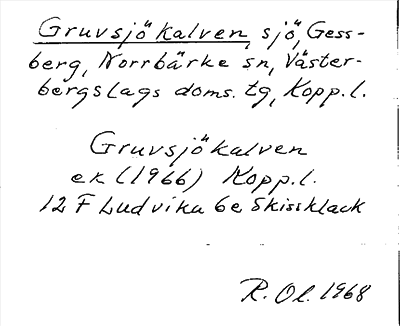 Gruvsjökalven, sjö, Gess-
berg, Norrbärke sn, Väster-
bergslags doms. tg, Kopp.l.
Gruvsjökalven
ek (1966) Kopp.l.
12 F Ludvika 6e Skissklack
R. Ol. 1968